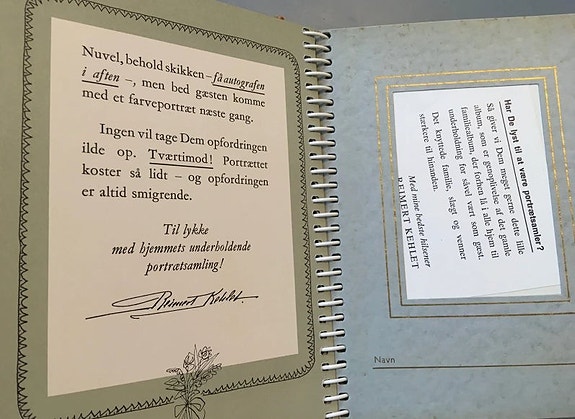 Nuvel, behold skikken – få autografen
i aften –, men bed gæsten komme
med et farveportræt næste gang.
Ingen vil tage Dem opfordringen
ilde op. Tværtimod! Portrættet
koster så lidt – og opfordringen
er altid smigrende.
Til lykke
med hjemmets underholdende
portrætsamling!
Reimert Kehlet.
Har De lyst til at være portrætsamler?
Så giver vi Dem meget gerne dette lille
album, som er genoplivelse af det gamle
familiealbum, der forhen lå i alle hjem til
underholdning for såvel vært som gæst.
Det knyttede familie, slægt og venner
stærkere til hinanden.
Med mine bedste hilsener
REIMERT KEHLET
Navn